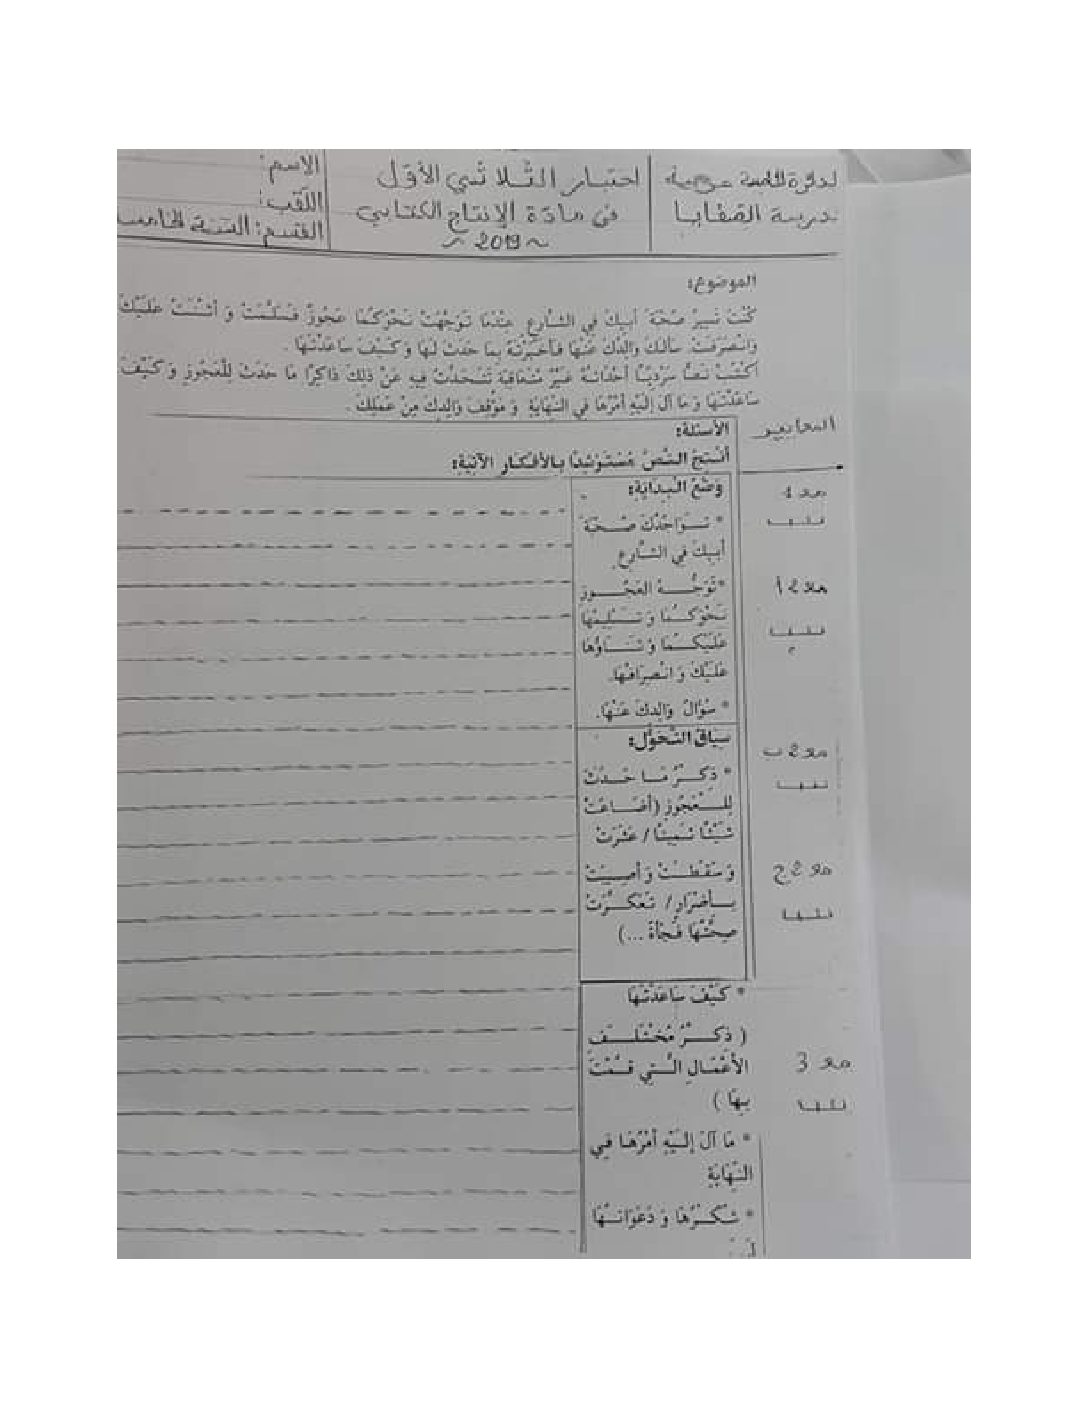 اختبار الثلاثي الأول
في مادة الإنتاج الكتابي
~ 2019 ~
مدرسة الصفايا
الاسم:
اللقب:
القسم: السنة الخامسة
الموضوع:
كُنْتَ تَسِيرُ صُحْبَةَ أَبِيكَ فِي الشَّارِعِ عِنْدَمَا تَوَجَّهَتْ نَحْوَكُمَا عَجُوزٌ فَسَلَّمَتْ وَ أَثْنَتْ عَلَيْكَ
وَانْصَرَفَتْ. سَأَلَكَ وَالِدُكَ عَنْهَا فَأَخْبَرْتَهُ بِمَا حَدَثَ لَهَا وَ كَيْفَ سَاعَدْتَهَا .
اُكْتُبْ نَصًّا سَرْدِيًّا أَحْدَاثُهُ غَيْرُ مُتَعَاقِبَةٍ تَتَحَدَّثُ فِيهِ عَنْ ذَلِكَ ذَاكِرًا مَا حَدَثَ لِلْعَجُوزِ وَ كَيْفَ
سَاعَدْتَهَا وَ مَا آلَ إِلَيْهِ أَمْرُهَا فِي النِّهَايَةِ وَ مَوْقِفَ وَالِدِكَ مِنْ عَمَلِكَ .
المعايير
الأسئلة:
أُنْتِجُ النَّصَّ مُسْتَرْشِدًا بِالأَفْكَارِ الآتِيَةِ:
وَضْعُ الْبِدَايَةِ:
* تَوَاجُدُكَ صُحْبَةَ
أَبِيكَ فِي الشَّارِعِ.
*تَوَجُّهُ الْعَجُوزِ
نَحْوَكُمَا وَ تَسْلِيمُهَا
عَلَيْكُمَا وَ ثَنَاؤُهَا
عَلَيْكَ وَ انْصِرَافُهَا.
* سُؤَالُ وَالِدِكَ عَنْهَا.
سِيَاقُ التَّحَوُّلِ:
* ذِكْرُ مَا حَدَثَ
لِلْعَجُوزِ (أَضَاعَتْ
شَيْئًا ثَمِينًا / عَثَرَتْ
وَ سَقَطَتْ وَ أُصِيبَتْ
بِأَضْرَارٍ / تَعَكَّرَتْ
صِحَّتُهَا فَجْأَةً ...)
* كَيْفَ سَاعَدْتَهَا
( ذِكْرُ مُخْتَلَفِ
الأَعْمَالِ الَّتِي قُمْتَ
بِهَا )
* مَا آلَ إِلَيْهِ أَمْرُهَا فِي
النِّهَايَةِ
* شُكْرُهَا وَ دَعَوَاتُهَا
مع 1
مع 2 أ
مع 2 ب
مع 2 ج
مع 3